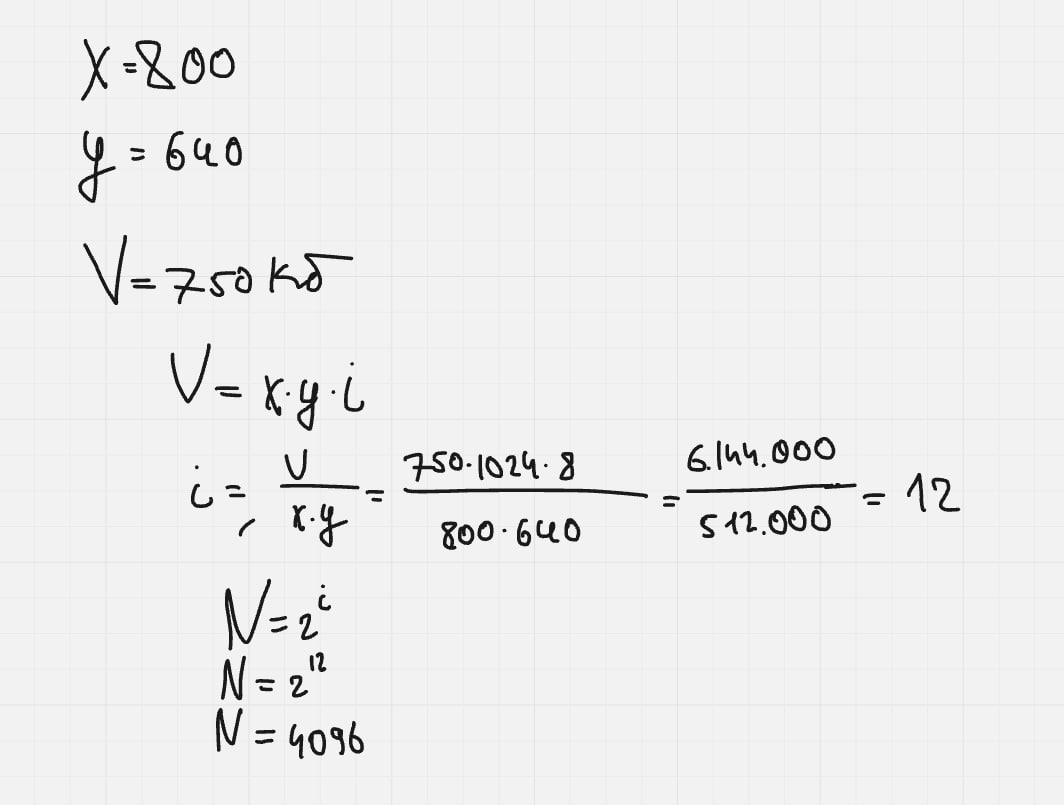 X=800
y=640
V=750 кб
V=x·y·i
i = V / x·y = 750·1024·8 / 800·640 = 6.144.000 / 512.000 = 12
N=2^i
N=2^12
N=4096